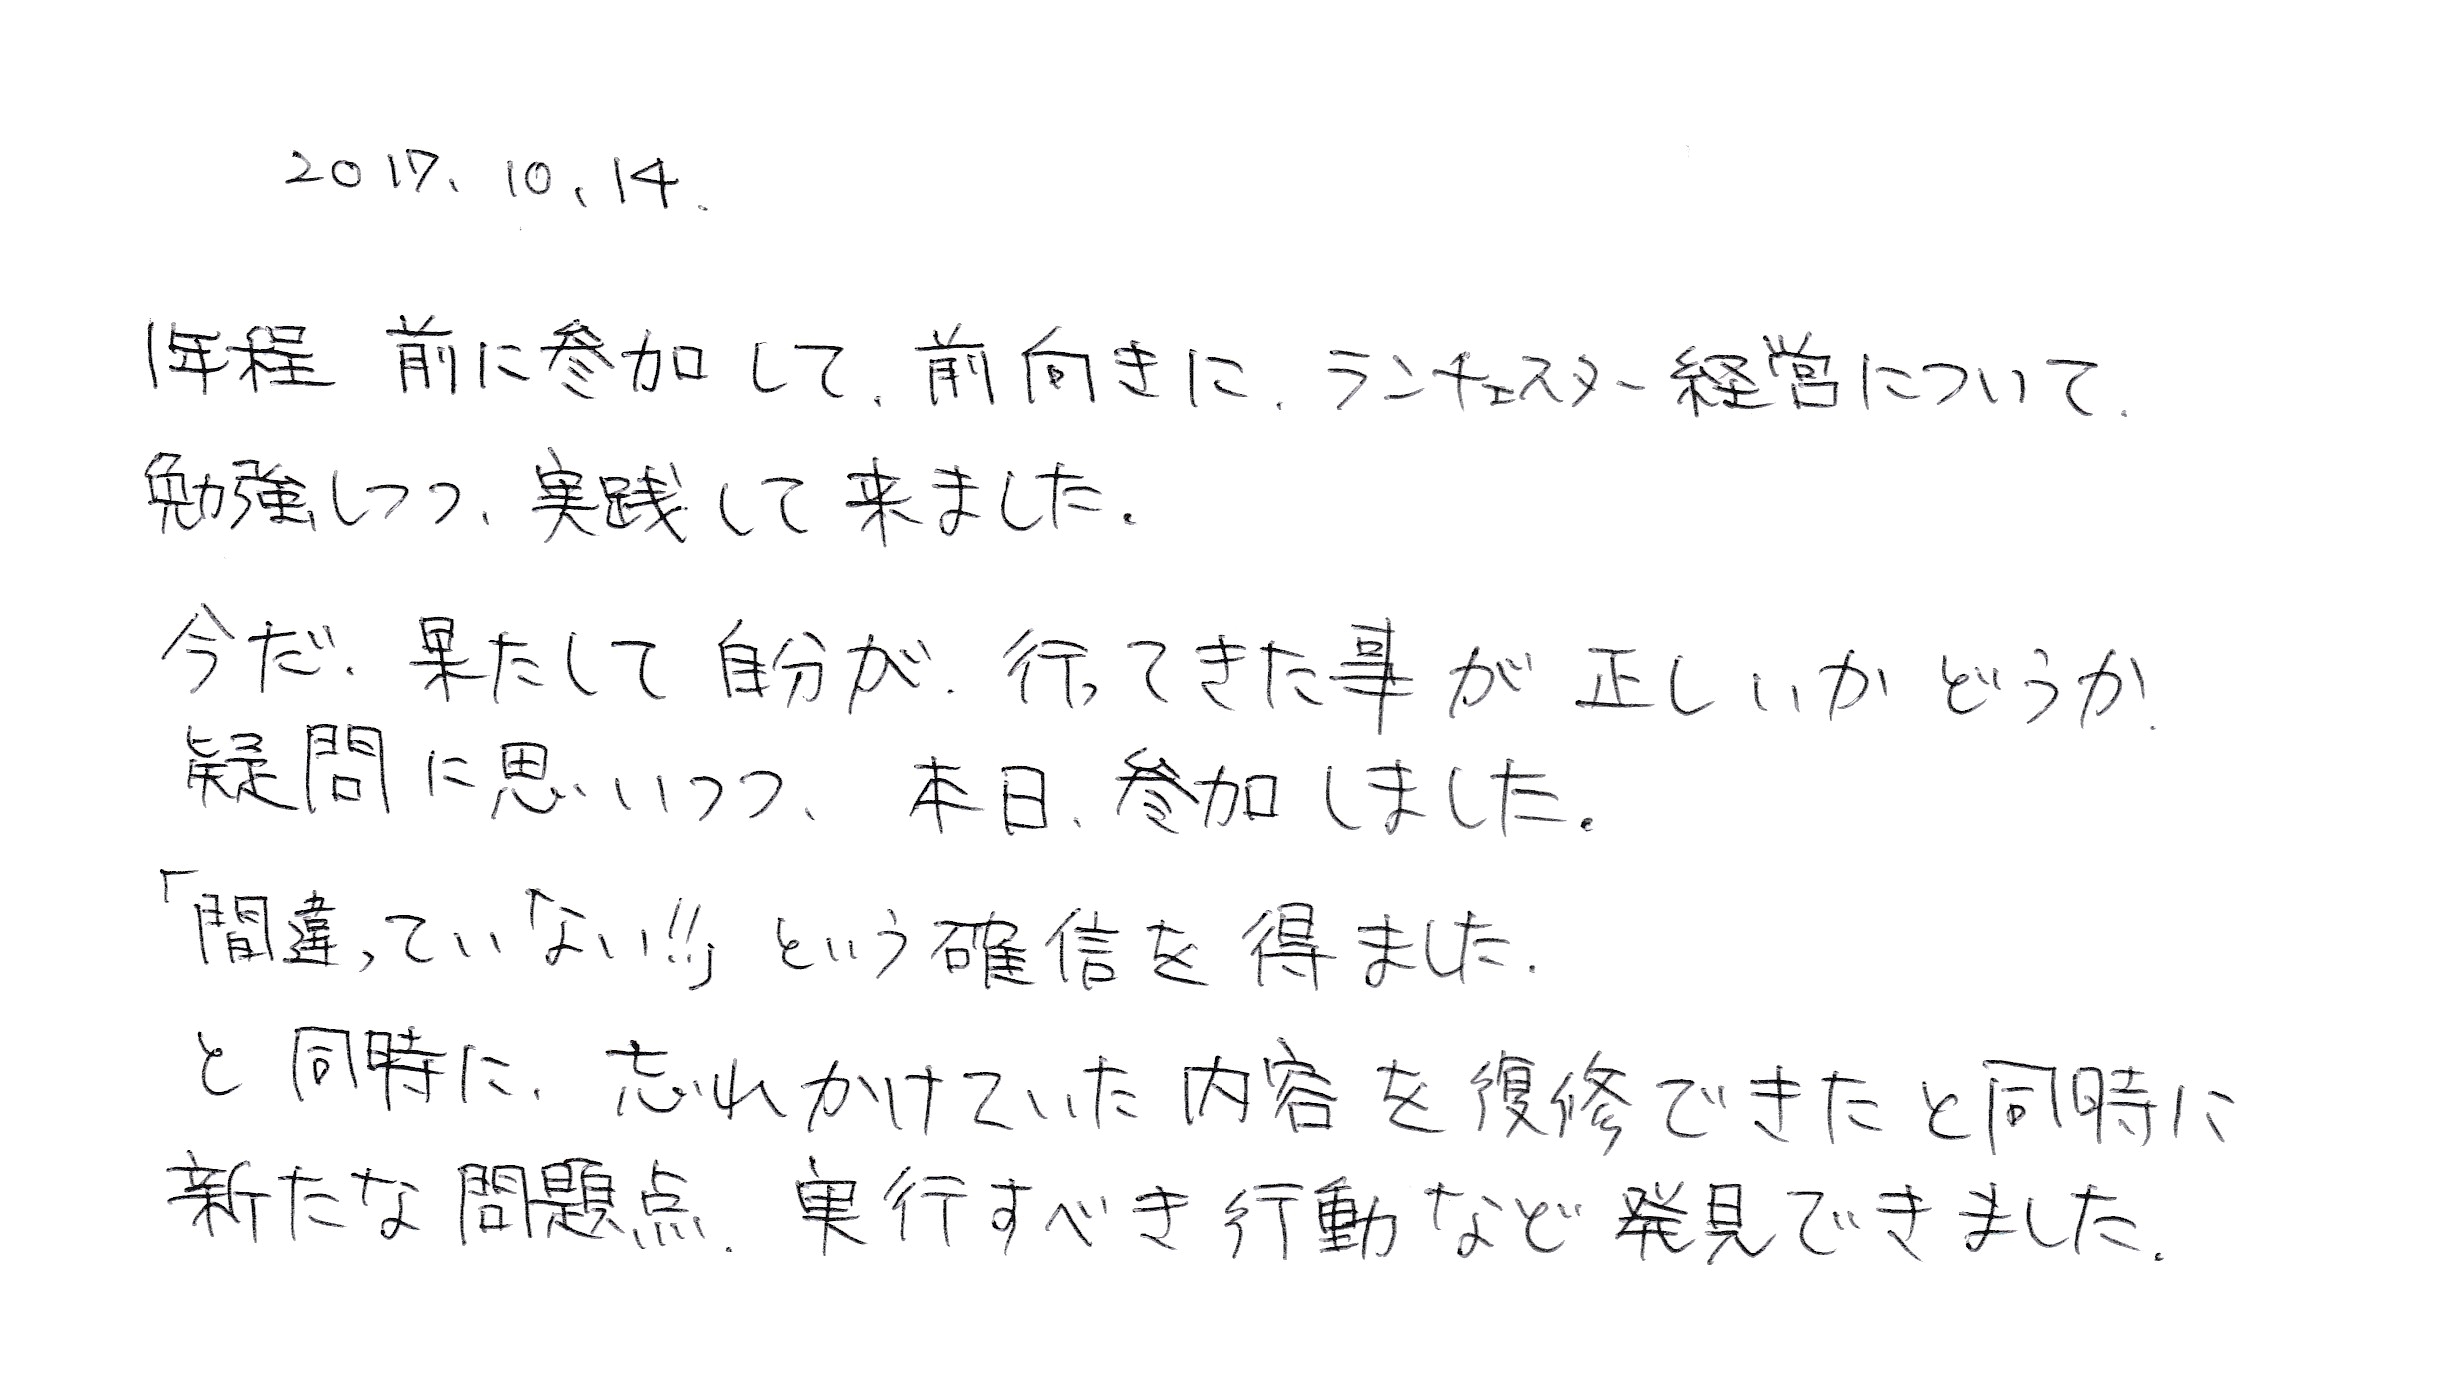 2017、10、14.
1年程 前に参加して、前向きに、ランチェスター経営について、
勉強しつつ、実践して来ました。
今だ、果たして自分が、行ってきた事が正しいかどうか、
疑問に思いつつ、本日、参加しました。
「間違っていない!!」という確信を得ました。
と同時に、忘れかけていた内容を復修できたと同時に
新たな問題点、実行すべき行動など発見できました。